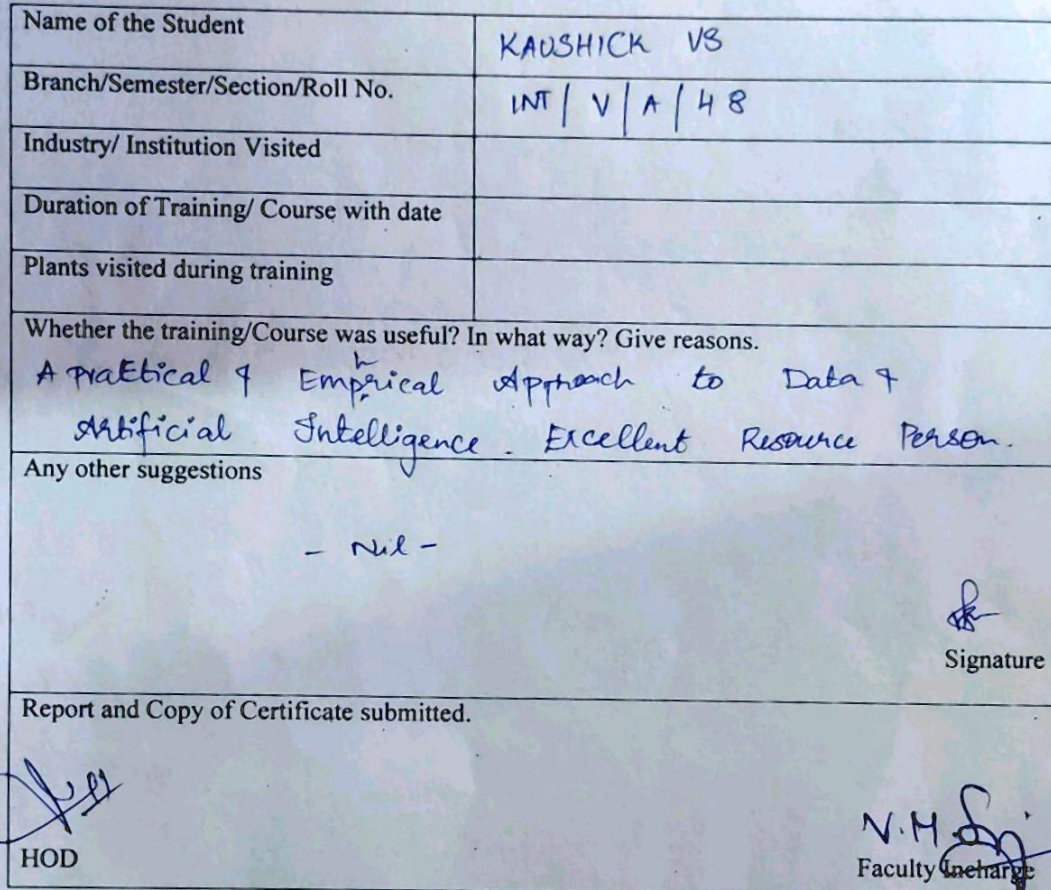 Name of the Student KAUSHICK VS
Branch/Semester/Section/Roll No. INT / V / A / 48
Industry/ Institution Visited
Duration of Training/ Course with date
Plants visited during training
Whether the training/Course was useful? In what way? Give reasons.
A Praktical & Emphrical Approach to Data &
Artificial Intelligence. Excellent Resource Person.
Any other suggestions
- Nil -
Signature
Report and Copy of Certificate submitted.
N.M.
HOD
Faculty Incharge